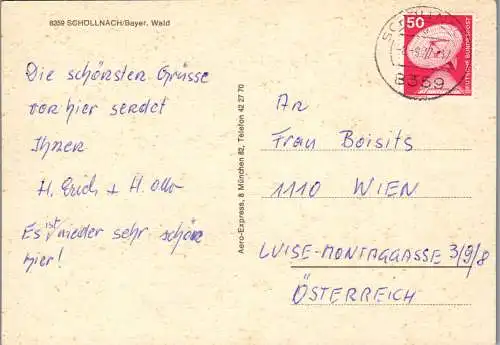 8359 SCHÖLLNACH/Bayer. Wald
Die schönsten Grüsse
von hier sendet
Ihnen
H. Erich + H. Otto
Es ist wieder sehr schön
hier!
Aero-Express, 8 München 82, Telefon 42 27 70
50
DEUTSCHE BUNDESPOST
8359
An
Frau Boisits
1110 WIEN
LUISE-MONTAGGASSE 3/9/8
ÖSTERREICH